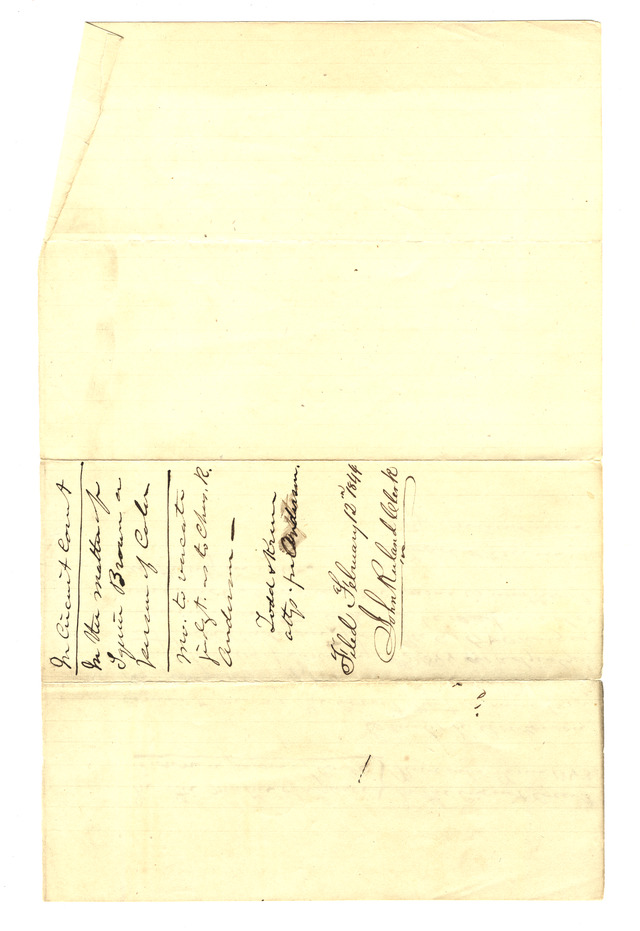 In Circuit Court
In the matter of
Squire Brown a
person of Color
Mo. to vacate
judgt. as to Chas. R.
Anderson —
Todd & Krum
attys. for Anderson.
Filed February 12th 1844
John Ruland Clerk